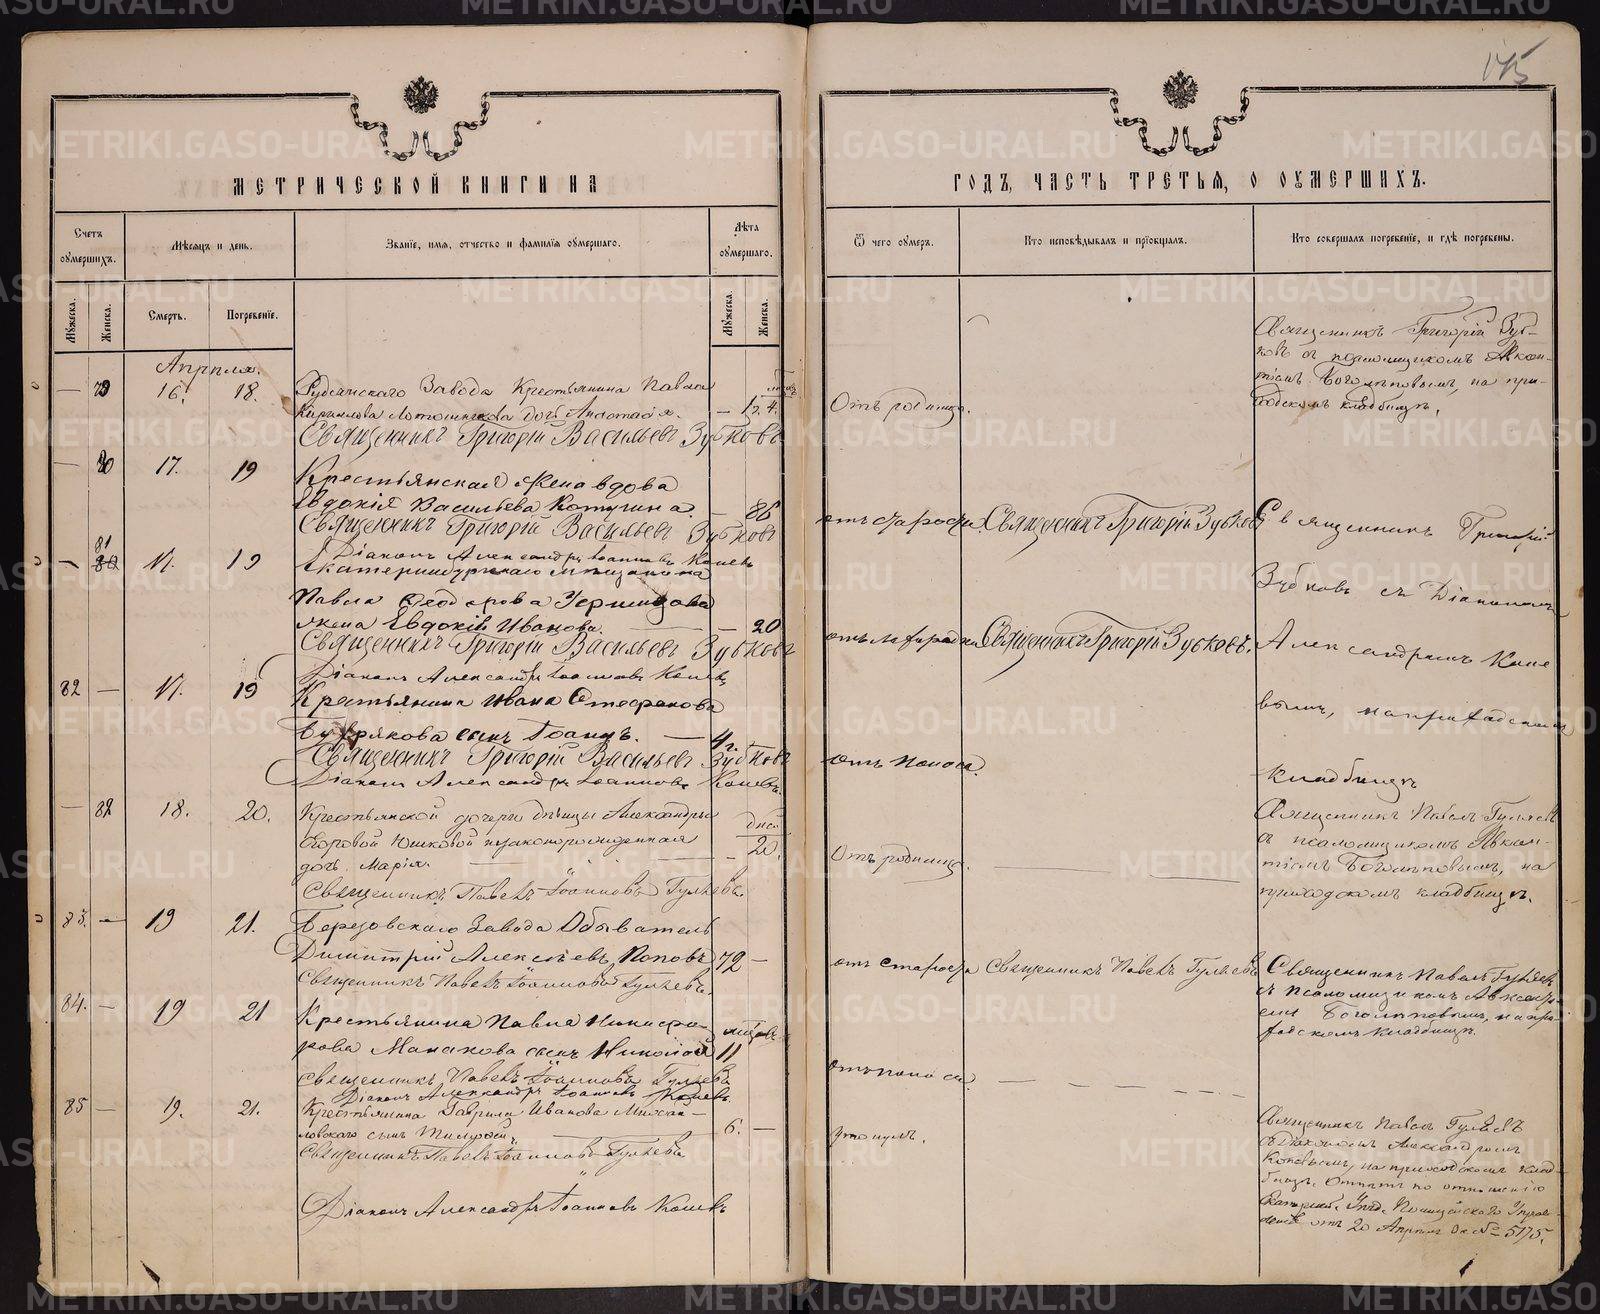 175
МЕТРИЧЕСКОЙ КНИГИ НА
ГОДЪ, ЧАСТЬ ТРЕТЬЯ, О ОУМЕРШИХЪ.
Счетъ оумершихъ.
Мѣсяцъ и день.
Званіе, имя, отчество и фамилія оумершаго.
Лѣта оумершаго.
Ѿ чего оумеръ.
Кто исповѣдывалъ и пріобщалъ.
Кто совершалъ погребеніе, и гдѣ погребены.
Мужеска.
Женска.
Смерть.
Погребеніе.
Мужеска.
Женска.
Апрѣля.
— 79 16. 18. Завода Крестьянина Павла
дочь Анастасія. — 4.
Священникъ Григорій Васильевъ Зубковъ
Отъ родимца.
Священникъ Григорій Зуб-
ковъ съ псаломщикомъ
Боголѣповымъ, на при-
ходскомъ кладбищѣ.
— 80 17. 19 Крестьянская жена вдова
Евдокія Васильева Котугина. — 86
Священникъ Григорій Васильевъ Зубковъ
Діаконъ Александръ Іоанновъ Коневъ
отъ старости. Священникъ Григорій Зубковъ
Священникъ Григорій
Зубковъ съ Діакономъ
Александромъ Коне
вымъ, на приходскомъ
кладбищѣ
— 81 80 17. 19 Екатеринбургскаго мѣщанина
Павла Ѳеодорова
жена Евдокія Иванова. — 20
Священникъ Григорій Васильевъ Зубковъ
Діаконъ Александръ Іоанновъ Коневъ
Священникъ Григорій Зубковъ.
82 — 17. 19 Крестьянина Ивана Стефанова
сынъ Іоаннъ. — 4 г.
Священникъ Григорій Васильевъ Зубковъ
Діаконъ Александръ Іоанновъ Коневъ.
отъ поноса.
— 82 18. 20. Крестьянской дочери дѣвицы Александры
Егоровой Юшковой незаконорожденная
дочь Марія. — дн. 20.
Священникъ Павелъ Іоанновъ Гуляевъ.
Отъ родимца.
Священникъ Павелъ Гуляевъ
съ псаломщикомъ
Боголѣповымъ, на
приходскомъ кладбищѣ.
83. — 19 21. Березовскаго Завода Обыватель
Димитрій Алексѣевъ Поповъ 72 —
Священникъ Павелъ Іоанновъ Гуляевъ.
отъ старости Священникъ Павелъ Гуляевъ
Священникъ Павелъ Гуляевъ
съ псаломщикомъ
Боголѣповымъ, на при-
ходскомъ кладбищѣ.
84. — 19 21 Крестьянина Павла Никифо-
рова Манакова сынъ Николай 11
Священникъ Павелъ Іоанновъ Гуляевъ
Діаконъ Александръ Іоанновъ Коневъ.
отъ поноса.
85 — 19. 21. Крестьянина Гаврила Иванова Михай-
ловскаго сынъ Тимофей. 6. —
Священникъ Павелъ Іоанновъ Гуляевъ
Діаконъ Александръ Іоанновъ Коневъ
утонулъ.
Священникъ Павелъ Гуляевъ
съ Діакономъ Александромъ
Коневымъ, на приходскомъ клад-
бищѣ. по отношенію
Екатеринб. Уѣзд. Полицейскаго Управ-
ленія отъ 20 Апрѣля за № 5175.
METRIKI.GASO-URAL.RU